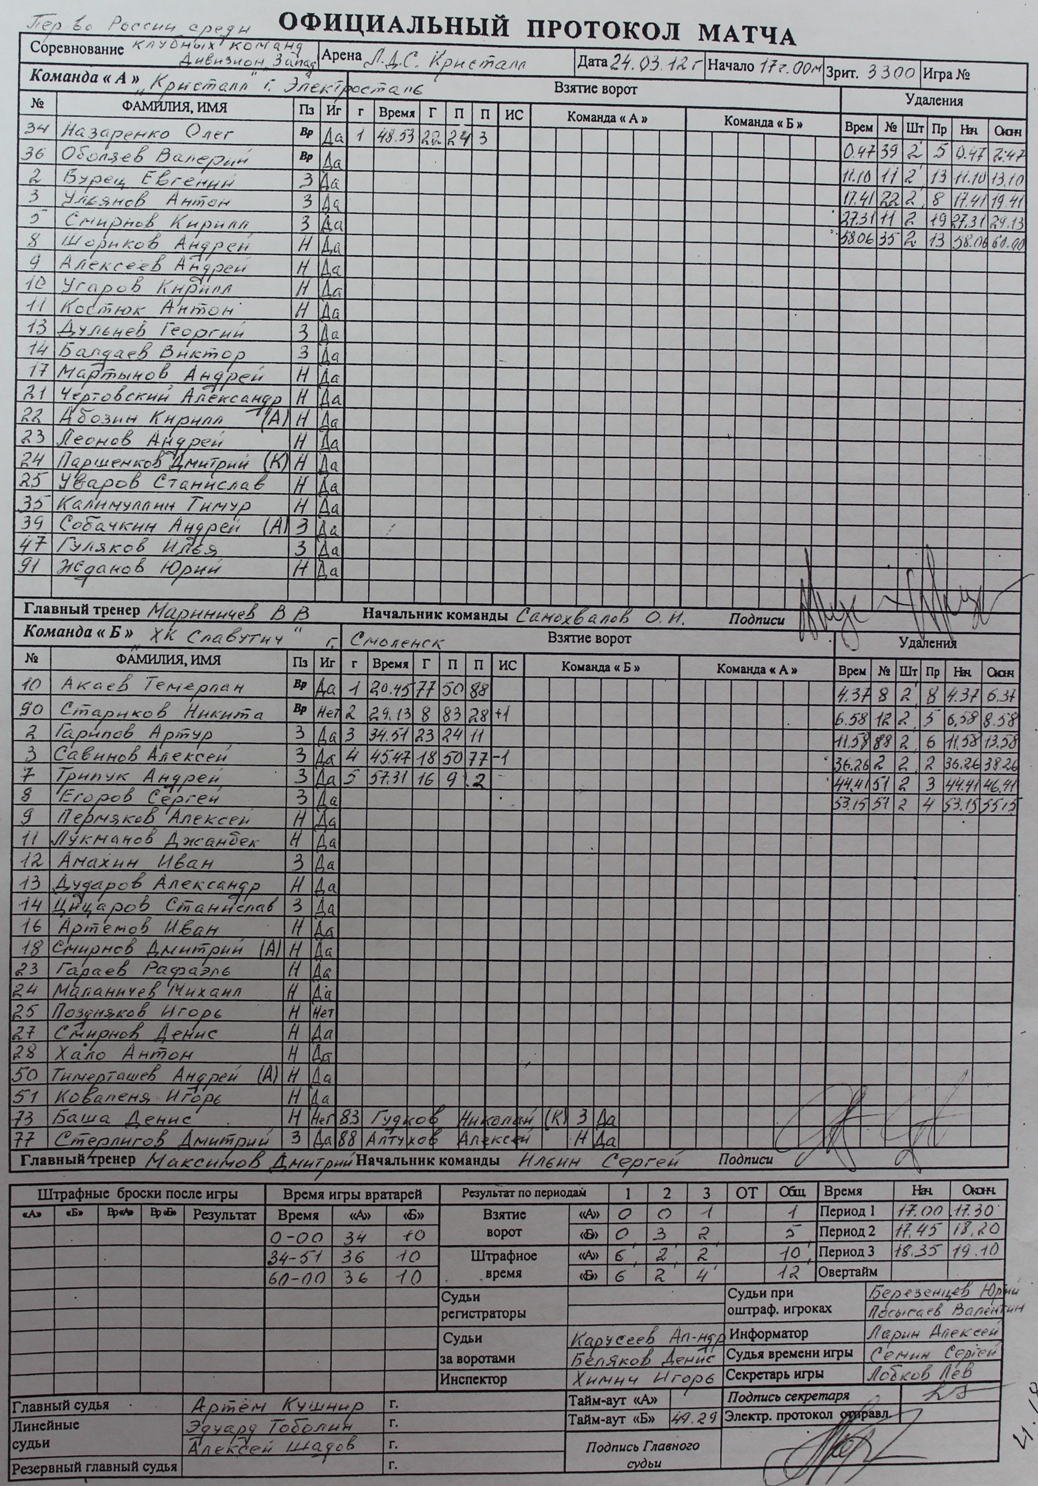 ОФИЦИАЛЬНЫЙ ПРОТОКОЛ МАТЧА
Пер во России среди
Соревнование клубных команд Дивизион Запад Арена Л.Д.С. Кристалл Дата 24.03.12 г Начало 17ч.00м Зрит. 3300 Игра №
Команда « А » "Кристалл" г. Электросталь Взятие ворот Удаления
№ ФАМИЛИЯ, ИМЯ Пз Иг г Время Г П П ИС Команда « А » Команда « Б » Врем № Шт Пр Нач Оконч
34 Назаренко Олег Вр Да 1 48.53 22 24 3 0.47 39 2 5 0.47 2.47
36 Оболяев Валерий Вр Да 11.10 11 2 13 11.10 13.10
2 Бурец Евгений З Да 17.41 22 2 8 17.41 19.41
3 Ульянов Антон З Да 27.31 11 2 19 27.31 29.13
5 Смирнов Кирилл З Да 58.06 35 2 13 58.06 60.00
8 Шориков Андрей Н Да
9 Алексеев Андрей Н Да
10 Угаров Кирилл Н Да
11 Костюк Антон Н Да
13 Дульнев Георгий З Да
14 Балдаев Виктор З Да
17 Мартынов Андрей Н Да
21 Чертовский Александр Н Да
22 Абозин Кирилл (А) Н Да
23 Леонов Андрей Н Да
24 Паршенков Дмитрий (К) Н Да
25 Уваров Станислав Н Да
35 Калимуллин Тимур Н Да
39 Собачкин Андрей (А) З Да
47 Гуляков Илья З Да
91 Жданов Юрий Н Да
Главный тренер Мариничев В В Начальник команды Самохвалов О.И. Подписи
Команда « Б » ХК Славутич" г. Смоленск Взятие ворот Удаления
№ ФАМИЛИЯ, ИМЯ Пз Иг г Время Г П П ИС Команда « Б » Команда « А » Врем № Шт Пр Нач Оконч
10 Акаев Темерлан Вр Да 1 20.45 77 50 88 4.37 8 2 8 4.37 6.37
90 Стариков Никита Вр Нет 2 29.13 8 83 28 +1 6.58 12 2 5 6.58 8.58
2 Гарипов Артур З Да 3 34.51 23 24 11 11.58 88 2 6 11.58 13.58
3 Савинов Алексей З Да 4 45.47 18 50 77 -1 36.26 2 2 2 36.26 38.26
7 Трипук Андрей З Да 5 57.31 16 9 2 44.41 51 2 3 44.41 46.41
8 Егоров Сергей З Да 53.15 51 2 4 53.15 55.15
9 Пермяков Алексей Н Да
11 Лукманов Джанбек Н Да
12 Амахин Иван З Да
13 Дударов Александр Н Да
14 Цицаров Станислав З Да
16 Артемов Иван Н Да
18 Смирнов Дмитрий (А) Н Да
23 Гараев Рафаэль Н Да
24 Маланичев Михаил Н Да
25 Поздняков Игорь Н Нет
27 Смирнов Денис Н Да
28 Хало Антон Н Да
50 Тимерташев Андрей (А) Н Да
51 Коваленя Игорь Н Да
73 Баша Денис Н Нет 83 Гудков Николай (К) З Да
77 Стерлигов Дмитрий З Да 88 Алтухов Алексей Н Да
Главный тренер Максимов Дмитрий Начальник команды Ильин Сергей Подписи
Штрафные броски после игры Время игры вратарей Результат по периодам 1 2 3 ОТ Общ Время Нач. Оконч.
«А» «Б» Вр«А» Вр«Б» Результат Время «А» «Б» Взятие ворот «А» 0 0 1 1 Период 1 17.00 17.30
0-00 34 10 «Б» 0 3 2 5 Период 2 17.45 18.20
34-51 36 10 Штрафное время «А» 6 2 2 10 Период 3 18.35 19.10
60-00 36 10 «Б» 6 2 4 12 Овертайм
Судьи регистраторы Судьи при оштраф. игроках Березенцев Юрий
Посыгаев Валентин
Судьи за воротами Карусеев Ал-ндр Информатор Ларин Алексей
Беляков Денис Судья времени игры Семин Сергей
Инспектор Химич Игорь Секретарь игры Лобков Лев
Главный судья Артём Кушнир г. Тайм-аут «А» Подпись секретаря
Линейные судьи Эдуард Тоболин г. Тайм-аут «Б» 49.29 Электр. протокол отправл.
Алексей Шадов г. Подпись Главного судьи
Резервный главный судья г.